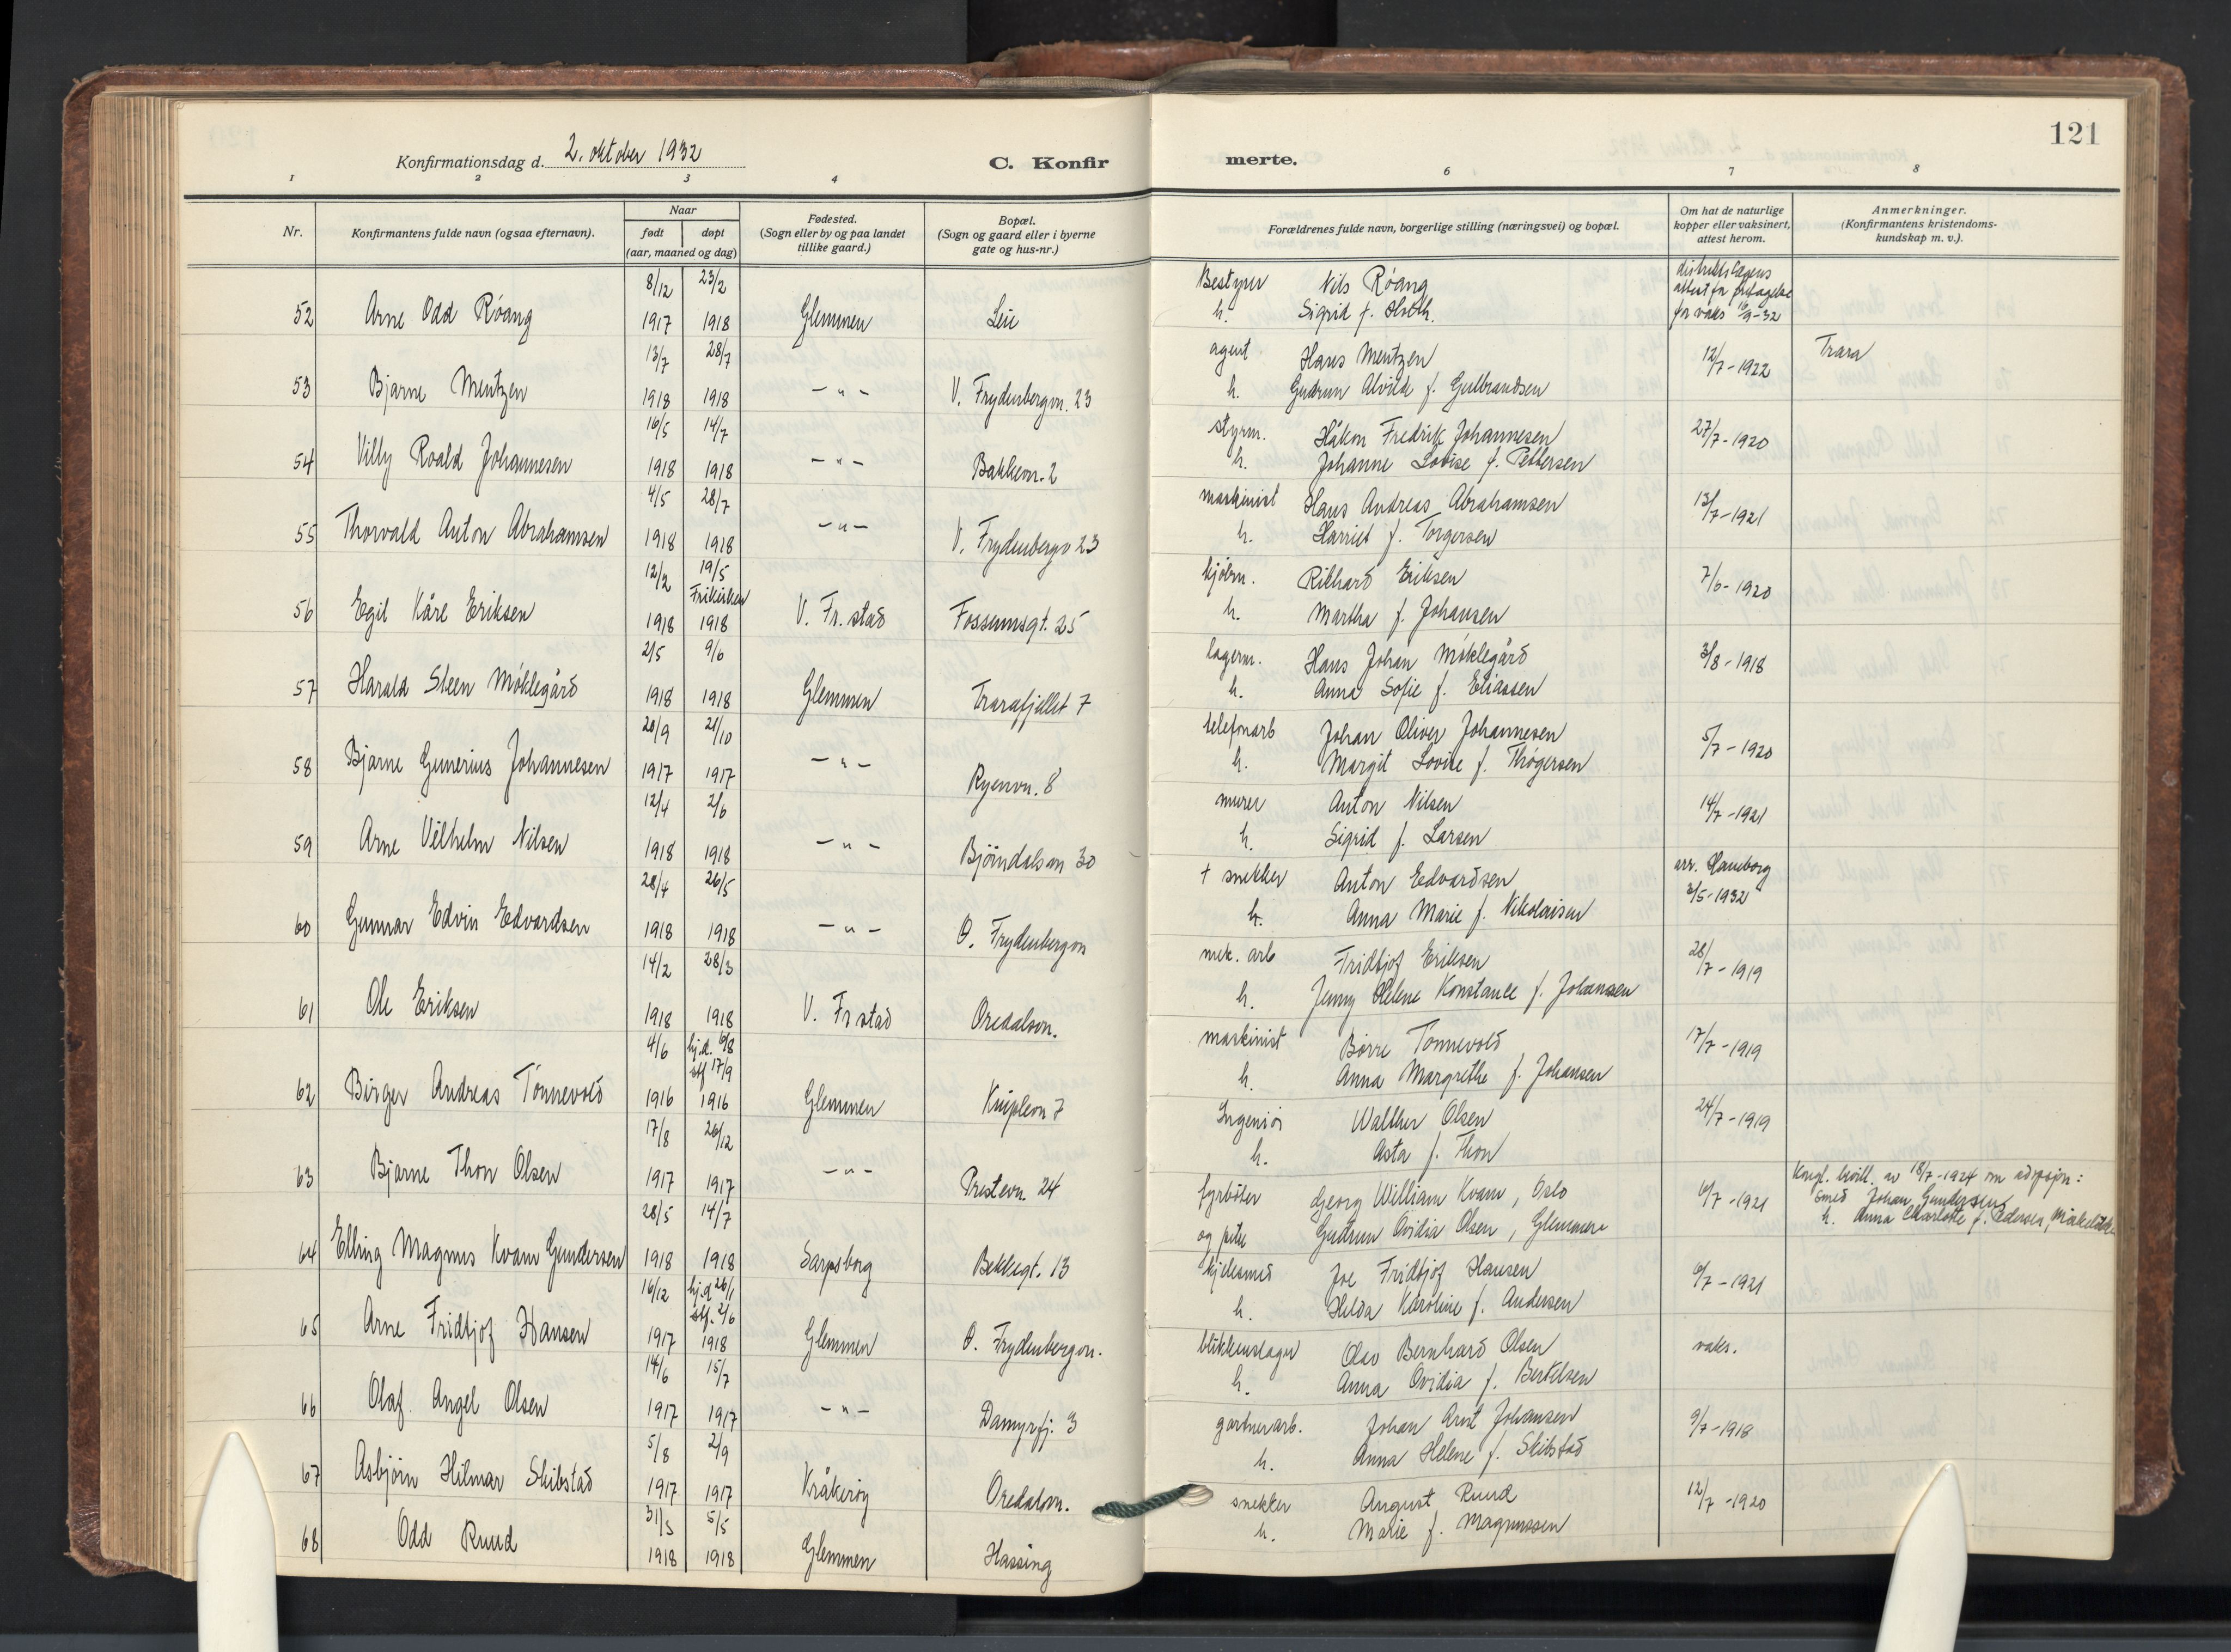 121
Konfirmationsdag d. 2. oktober 1932
C. Konfir merte.
1 2 3 4 6 7 8
Nr.
Konfirmantens fulde navn (ogsaa efternavn).
Naar
født døpt
(aar, maaned og dag)
Fødested.
(Sogn eller by og paa landet
tillike gaard.)
Bopæl.
(Sogn og gaard eller i byerne
gate og hus-nr.)
Forældrenes fulde navn, borgerlige stilling (næringsvei) og bopæl.
Om hat de naturlige
kopper eller vaksinert,
attest herom.
Anmerkninger.
(Konfirmantens kristendoms-
kundskap m. v.).
8/12 23/2 Bestyrer Nils Röang attest for fritagelse
52 Arne Odd Röang 1917 1918 Glemmen Leie h. Sigrid f. for vaks 16/9-32
13/7 28/7 agent Hans Mentzen 12/7-1922 Trara
53 Bjarne Mentzen 1918 1918 -"- V. Frydenbergvn. 23 h. Gudrun Alvild f. Gulbrandsen
16/5 14/7 styrm. Håkon Fredrik Johannesen 27/7-1920
54 Villy Roald Johannesen 1918 1918 -"- Bakkevn. 2 h. Johanne Lovise f. Pettersen
4/5 28/7 maskinist Hans Andreas Abrahamsen 13/7-1921
55 Thorvald Anton Abrahamsen 1918 1918 -"- V. Frydenbergv 23 h. Harriet f. Torgersen
12/2 19/5 kjöbm. Rikhard Eriksen 7/6-1920
Frikirken
56 Egil Kåre Eriksen 1918 1918 V. Fr.stad Fossumsgt. 25 h. Martha f. Johansen
2/5 9/6 lagerm. Hans Johan Möklegård 3/8-1918
57 Harald Steen Möklegård 1918 1918 Glemmen Trarafjellet 7 h. Anna Sofie f. Eliassen
20/9 21/10 telefonarb Johan Oliver Johannesen 5/7-1920
58 Bjarne Gunerius Johannesen 1917 1917 -"- Ryenvn. 8 h. Margit Lovise f. Thögersen
12/4 2/6 murer Anton Nilsen 14/7-1921
59 Arne Vilhelm Nilsen 1918 1918 -"- Bjöndalsvn 30 h. Sigrid f. Larsen
28/4 26/5 + snekker Anton Edvardsen arr. Haneborg
60 Gunnar Edvin Edvardsen 1918 1918 -"- Ö. Frydenbergvn h. Anna Marie f. Nikolaisen 3/5-1932
14/2 28/3 mek. arb Fridtjof Eriksen 28/7-1919
61 Ole Eriksen 1918 1918 V. Fr stad Oredalsvn. h. Jenny Helene Konstanse f. Johansen
4/6 hj.d. 6/8 maskinist Börre Tönnevold 17/7-1919
stf 17/9
62 Birger Andreas Tönnevold 1916 1916 Glemmen Kniplevn 7 h. Anna Margrethe f. Johansen
17/8 26/12 Ingeniör Walther Olsen 24/7-1919
63 Bjarne Thon Olsen 1917 1917 -"- Prestevn. 24 h. Asta f. Thon
28/5 14/7 fyrböter Georg William Kvam, Oslo 6/7-1921 Kongl. bevill. av 18/7-1924 om adopsjon:
smed Johan Gundersen
64 Elling Magnus Kvam Gundersen 1918 1918 Sarpsborg Bekkegt. 13 og pike Gudrun Ovidia Olsen, Glemmen h. Anna Charlotte f. Pedersen,
16/12 hj.d 26/1 kjelesmed Joe Fridtjof Hansen 6/7-1921
stf. 2/6
65 Arne Fridtjof Hansen 1917 1918 Glemmen Ö. Frydenbergvn. h. Hilda Karoline f. Andersen
14/6 15/7 blikkenslager Olav Bernhard Olsen vaks.
66 Olaf Angel Olsen 1917 1917 -"- Damyrfj. 3 h. Anna Ovidia f. Bertelsen
5/8 2/9 gartnerarb. Johan Arnt Johansen 9/7-1918
67 Asbjörn Hilmar Skibstad 1917 1917 Kråkeröy Oredalsvn. h. Anna Helene f. Skibstad
31/3 5/5 snekker August Ruud 12/7-1920
68 Odd Ruud 1918 1918 Glemmen Hassing h. Marie f. Magnussen